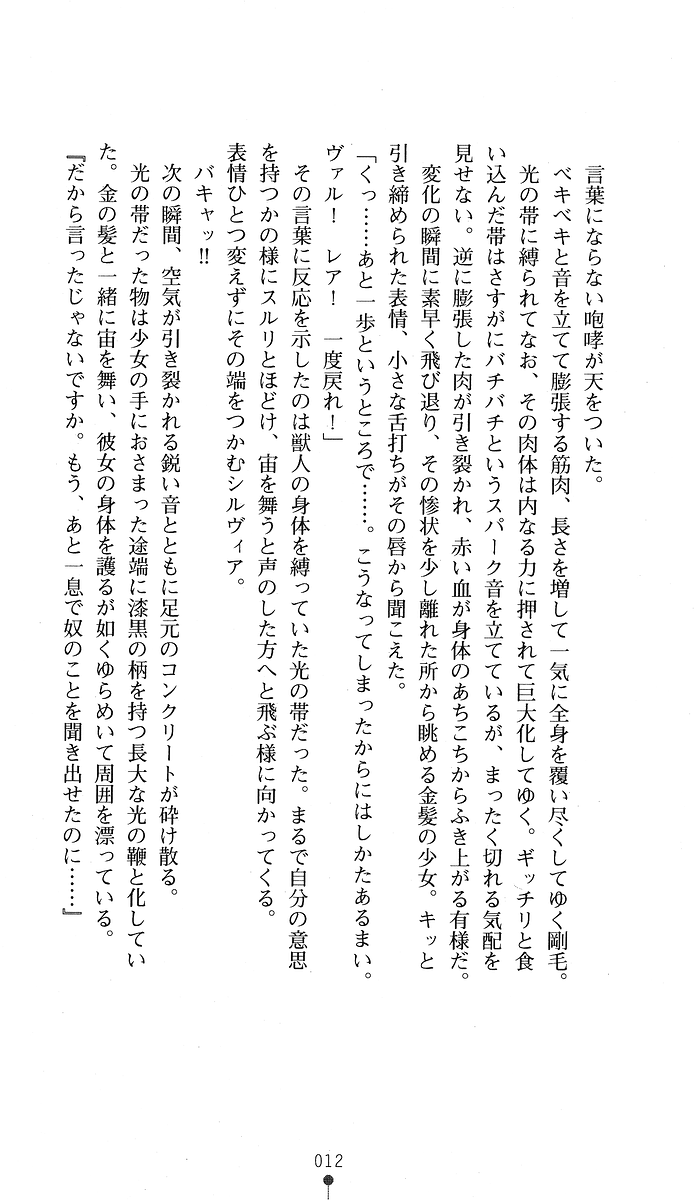 言葉にならない咆哮が天をついた。
ベキベキと音を立てて膨張する筋肉、長さを増して一気に全身を覆い尽くしてゆく剛毛。
光の帯に縛られてなお、その肉体は内なる力に押されて巨大化してゆく。ギッチリと食
い込んだ帯はさすがにバチバチというスパーク音を立てているが、まったく切れる気配を
見せない。逆に膨張した肉が引き裂かれ、赤い血が身体のあちこちからふき上がる有様だ。
変化の瞬間に素早く飛び退り、その惨状を少し離れた所から眺める金髪の少女。キッと
引き締められた表情、小さな舌打ちがその唇から聞こえた。
「くっ……あと一歩というところで……。こうなってしまったからにはしかたあるまい。
ヴァル！　レア！　一度戻れ！」
その言葉に反応を示したのは獣人の身体を縛っていた光の帯だった。まるで自分の意思
を持つかの様にスルリとほどけ、宙を舞うと声のした方へと飛ぶ様に向かってくる。
表情ひとつ変えずにその端をつかむシルヴィア。
バキャッ!!
次の瞬間、空気が引き裂かれる鋭い音とともに足元のコンクリートが砕け散る。
光の帯だった物は少女の手におさまった途端に漆黒の柄を持つ長大な光の鞭と化してい
た。金の髪と一緒に宙を舞い、彼女の身体を護るが如くゆらめいて周囲を漂っている。
『だから言ったじゃないですか。もう、あと一息で奴のことを聞き出せたのに……』
012